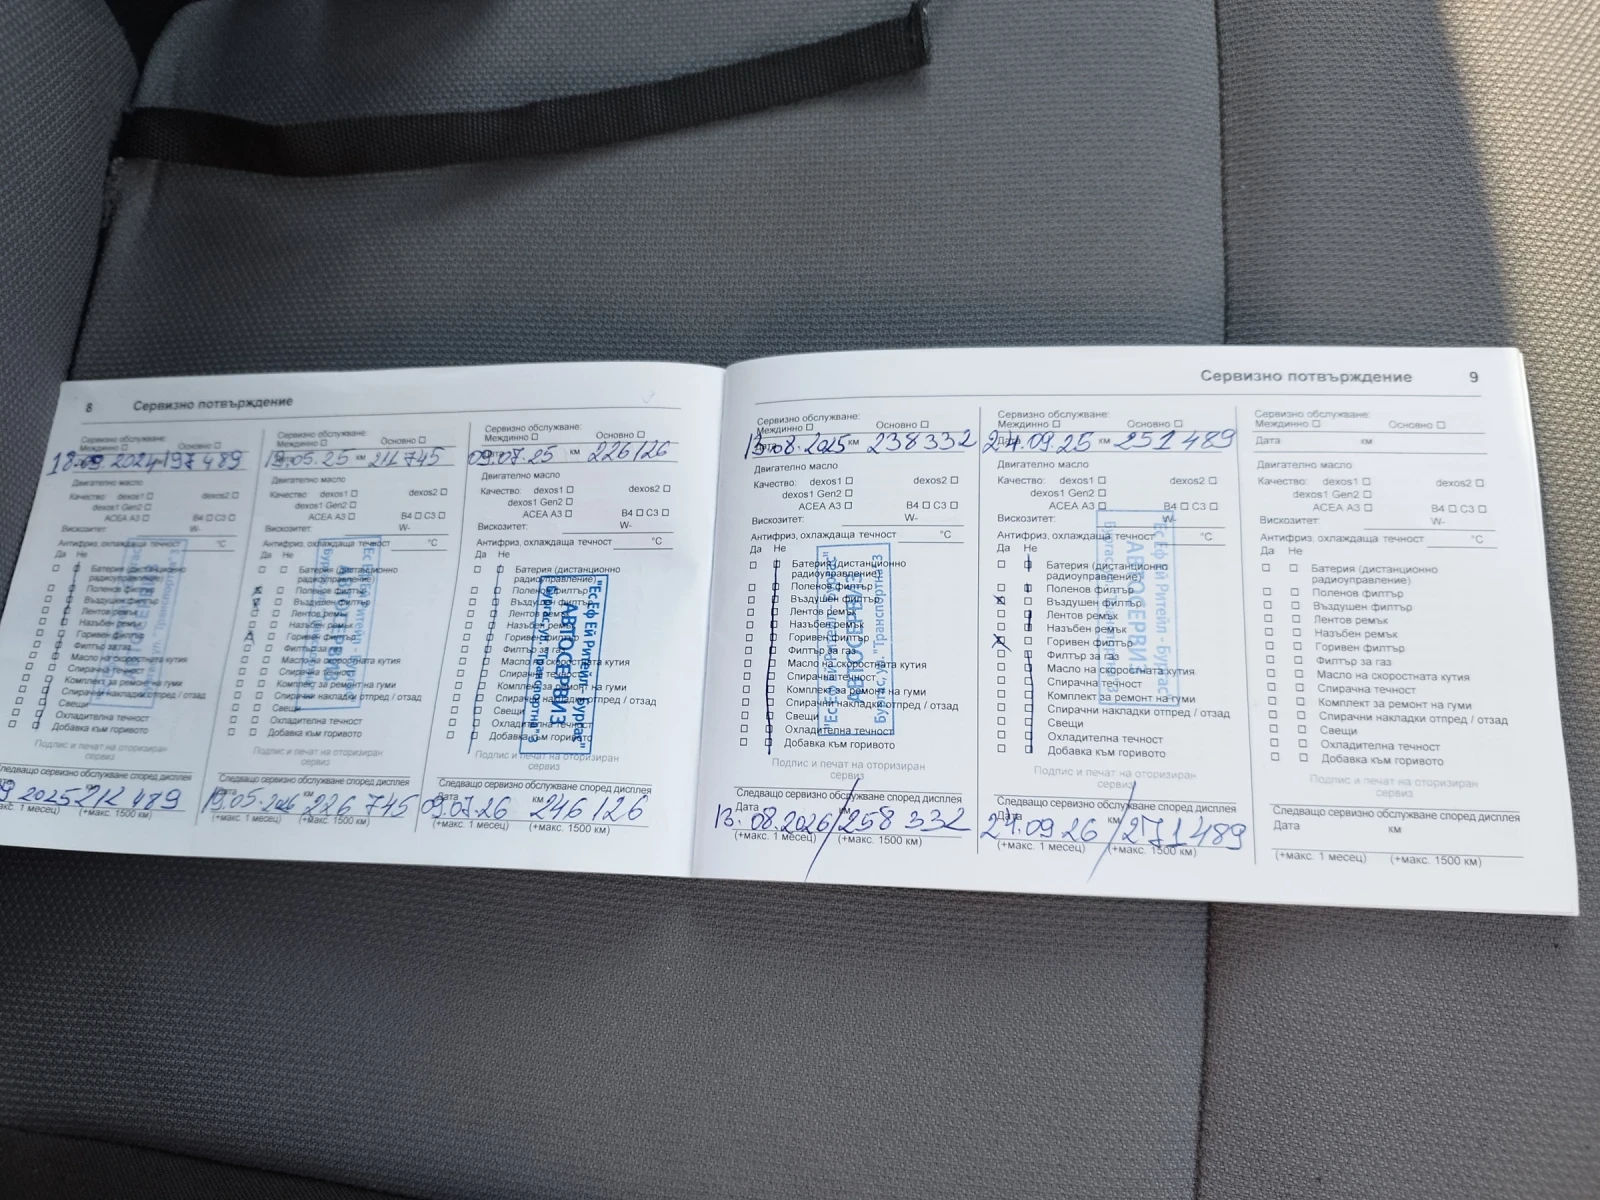 8 Сервизно потвърждение
Сервизно обслужване:
Междинно Основно
18.09.2024 197 489
Двигателно масло
Качество: dexos1 dexos2
dexos1 Gen2
ACEA A3 B4 C3
Вискозитет: W-
Антифриз, охлаждаща течност °C
Да Не
Батерия (дистанционно
радиоуправление)
Поленов филтър
Въздушен филтър
Лентов ремък
Назъбен ремък
Горивен филтър
Филтър за газ
Масло на скоростната кутия
Спирачна течност
Комплект за ремонт на гуми
Спирачни накладки отпред / отзад
Свещи
Охладителна течност
Добавка към горивото
Подпис и печат на оторизиран
сервиз
Следващо сервизно обслужване според дисплея
9 2025 212 489
(+макс. 1 месец) (+макс. 1500 км)
Сервизно обслужване:
Междинно Основно
19.05.25 км 211 745
Двигателно масло
Качество: dexos1 dexos2
dexos1 Gen2
ACEA A3 B4 C3
Вискозитет: W-
Антифриз, охлаждаща течност °C
Да Не
Батерия (дистанционно
радиоуправление)
Поленов филтър
Въздушен филтър
Лентов ремък
Назъбен ремък
Горивен филтър
Филтър за газ
Масло на скоростната кутия
Спирачна течност
Комплект за ремонт на гуми
Спирачни накладки отпред / отзад
Свещи
Охладителна течност
Добавка към горивото
Подпис и печат на оторизиран
сервиз
Следващо сервизно обслужване според дисплея
Дата км
19.05.2026 226 745
(+макс. 1 месец) (+макс. 1500 км)
Сервизно обслужване:
Междинно Основно
09.07.25 км 226126
Двигателно масло
Качество: dexos1 dexos2
dexos1 Gen2
ACEA A3 B4 C3
Вискозитет: W-
Антифриз, охлаждаща течност °C
Да Не
Батерия (дистанционно
радиоуправление)
Поленов филтър
Въздушен филтър
Лентов ремък
Назъбен ремък
Горивен филтър
Филтър за газ
Масло на скоростната кутия
Спирачна течност
Комплект за ремонт на гуми
Спирачни накладки отпред / отзад
Свещи
Охладителна течност
Добавка към горивото
"Ес Еф Ей Ритейл - Бургас"
АВТОСЕРВИЗ
Бургас, ул. "Транспортна" 3
Подпис и печат на оторизиран
сервиз
Следващо сервизно обслужване според дисплея
Дата км
09.07.26 246 126
(+макс. 1 месец) (+макс. 1500 км)
Сервизно потвърждение 9
Сервизно обслужване:
Междинно Основно
13.08.2025 км 238 332
Двигателно масло
Качество: dexos1 dexos2
dexos1 Gen2
ACEA A3 B4 C3
Вискозитет: W-
Антифриз, охлаждаща течност °C
Да Не
Батерия (дистанционно
радиоуправление)
Поленов филтър
Въздушен филтър
Лентов ремък
Назъбен ремък
Горивен филтър
Филтър за газ
Масло на скоростната кутия
Спирачна течност
Комплект за ремонт на гуми
Спирачни накладки отпред / отзад
Свещи
Охладителна течност
Добавка към горивото
"Ес Еф Ей Ритейл - Бургас"
АВТОСЕРВИЗ
Бургас, ул. "Транспортна" 3
Подпис и печат на оторизиран
сервиз
Следващо сервизно обслужване според дисплея
Дата км
13.08.2026/258 332
(+макс. 1 месец) (+макс. 1500 км)
Сервизно обслужване:
Междинно Основно
Дата 24.09.25 км 251 489
Двигателно масло
Качество: dexos1 dexos2
dexos1 Gen2
ACEA A3 B4 C3
Вискозитет: W-
Антифриз, охлаждаща течност °C
Да Не
Батерия (дистанционно
радиоуправление)
Поленов филтър
Въздушен филтър
Лентов ремък
Назъбен ремък
Горивен филтър
Филтър за газ
Масло на скоростната кутия
Спирачна течност
Комплект за ремонт на гуми
Спирачни накладки отпред / отзад
Свещи
Охладителна течност
Добавка към горивото
Ес Еф Ей Ритейл - Бургас
АВТОСЕРВИЗ
Подпис и печат на оторизиран
сервиз
Следващо сервизно обслужване според дисплея
Дата км
24.09 26/271489
(+макс. 1 месец) (+макс. 1500 км)
Сервизно обслужване:
Междинно Основно
Дата км
Двигателно масло
Качество: dexos1 dexos2
dexos1 Gen2
ACEA A3 B4 C3
Вискозитет: W-
Антифриз, охлаждаща течност °C
Да Не
Батерия (дистанционно
радиоуправление)
Поленов филтър
Въздушен филтър
Лентов ремък
Назъбен ремък
Горивен филтър
Филтър за газ
Масло на скоростната кутия
Спирачна течност
Комплект за ремонт на гуми
Спирачни накладки отпред / отзад
Свещи
Охладителна течност
Добавка към горивото
Подпис и печат на оторизиран
сервиз
Следващо сервизно обслужване според дисплея
Дата км
(+макс. 1 месец) (+макс. 1500 км)